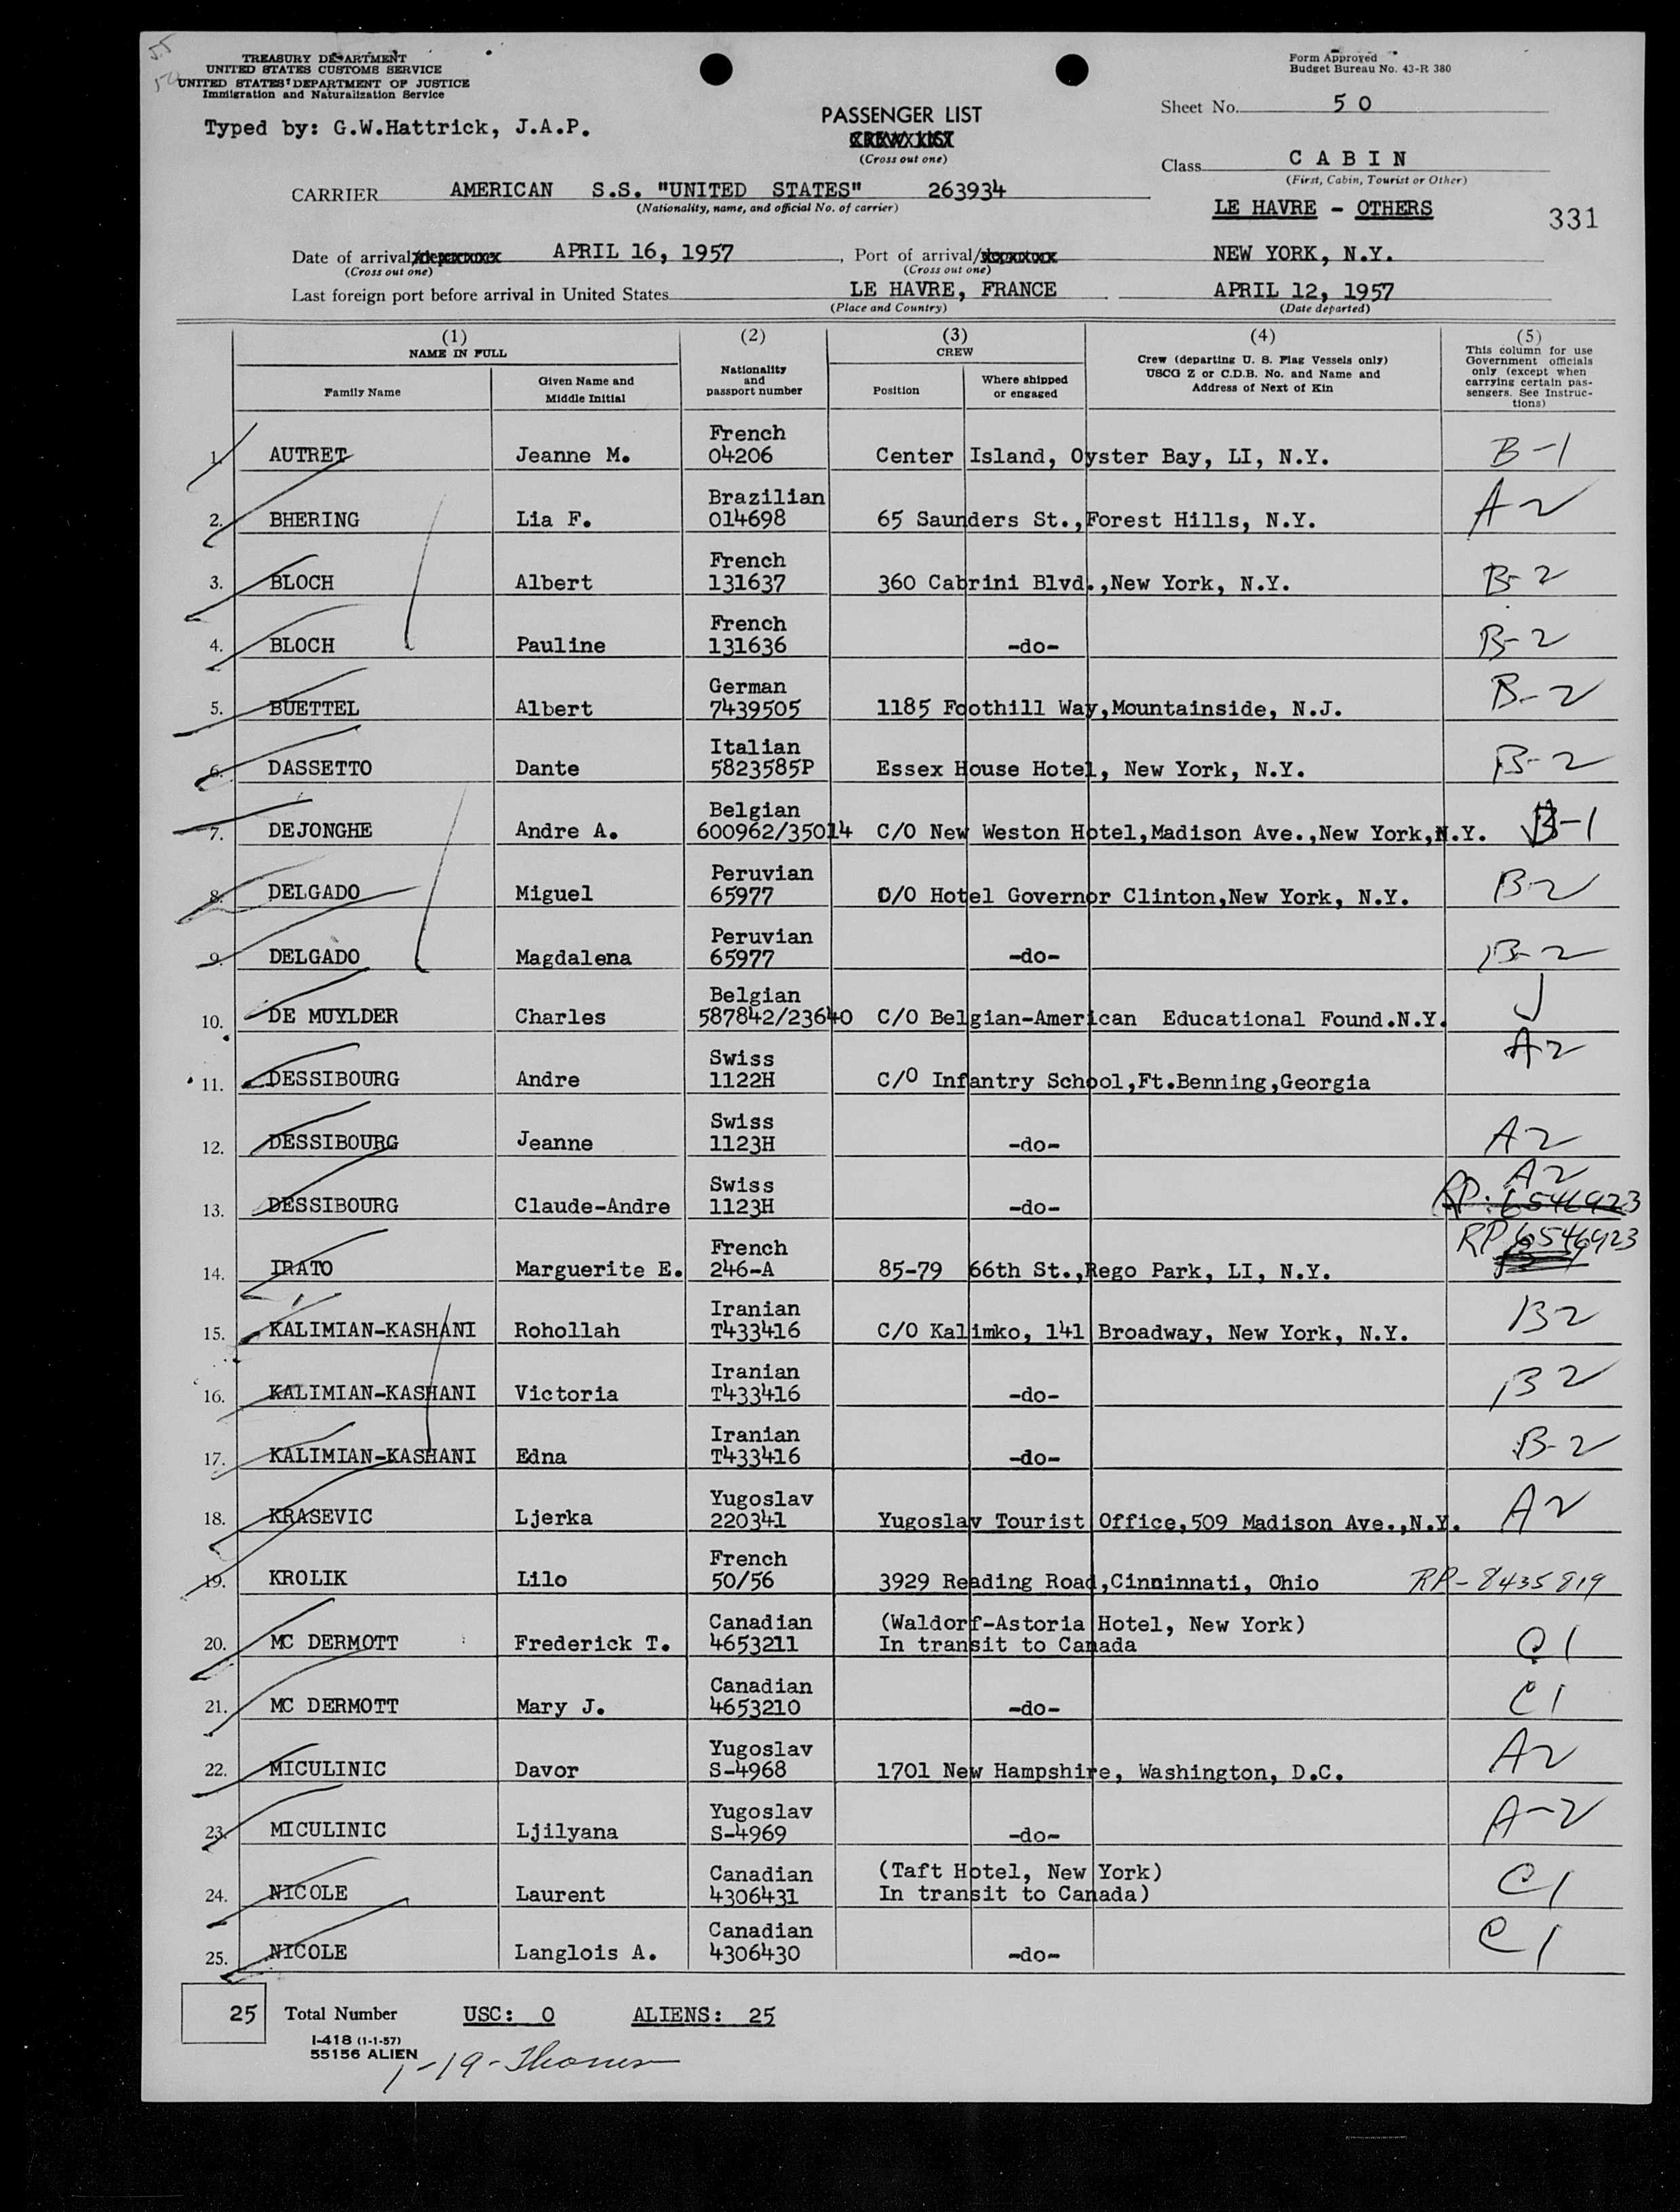 55
50
TREASURY DEPARTMENT
UNITED STATES CUSTOMS SERVICE
UNITED STATES DEPARTMENT OF JUSTICE
Immigration and Naturalization Service
Form Approved
Budget Bureau No. 43-R 380
Typed by: G.W.Hattrick, J.A.P.
PASSENGER LIST
CREW LIST
(Cross out one)
Sheet No. 5 0
Class C A B I N
(First, Cabin, Tourist or Other)
CARRIER AMERICAN S.S. "UNITED STATES" 263934
(Nationality, name, and official No. of carrier)
LE HAVRE - OTHERS 331
Date of arrival APRIL 16, 1957, Port of arrival/ NEW YORK, N.Y.
(Cross out one) (Cross out one)
Last foreign port before arrival in United States LE HAVRE, FRANCE APRIL 12, 1957
(Place and Country) (Date departed)
(1) NAME IN FULL
Family Name
Given Name and Middle Initial
(2)
Nationality and passport number
(3) CREW
Position
Where shipped or engaged
(4)
Crew (departing U. S. Flag Vessels only)
USCG Z or C.D.B. No. and Name and
Address of Next of Kin
(5)
This column for use
Government officials
only (except when
carrying certain pas-
sengers. See Instruc-
tions)
1. AUTRET Jeanne M. French 04206 Center Island, Oyster Bay, LI, N.Y. B-1
2. BHERING Lia F. Brazilian 014698 65 Saunders St.,Forest Hills, N.Y. A2
3. BLOCH Albert French 131637 360 Cabrini Blvd.,New York, N.Y. B-2
4. BLOCH Pauline French 131636 -do- B-2
5. BUETTEL Albert German 7439505 1185 Foothill Way,Mountainside, N.J. B-2
6. DASSETTO Dante Italian 5823585P Essex House Hotel, New York, N.Y. B-2
7. DEJONGHE Andre A. Belgian 600962/35014 C/O New Weston Hotel,Madison Ave.,New York,N.Y. B-1
8. DELGADO Miguel Peruvian 65977 C/O Hotel Governor Clinton,New York, N.Y. B-2
9. DELGADO Magdalena Peruvian 65977 -do- B-2
10. DE MUYLDER Charles Belgian 587842/23640 C/O Belgian-American Educational Found.N.Y. J
11. DESSIBOURG Andre Swiss 1122H C/O Infantry School,Ft.Benning,Georgia A2
12. DESSIBOURG Jeanne Swiss 1123H -do- A2
13. DESSIBOURG Claude-Andre Swiss 1123H -do- A2
RP. 6546923
14. IRATO Marguerite E. French 246-A 85-79 66th St.,Rego Park, LI, N.Y. RP 6546923
15. KALIMIAN-KASHANI Rohollah Iranian T433416 C/O Kalimko, 141 Broadway, New York, N.Y. B2
16. KALIMIAN-KASHANI Victoria Iranian T433416 -do- B2
17. KALIMIAN-KASHANI Edna Iranian T433416 -do- B-2
18. KRASEVIC Ljerka Yugoslav 220341 Yugoslav Tourist Office,509 Madison Ave.,N.Y. A2
19. KROLIK Lilo French 50/56 3929 Reading Road,Cinninnati, Ohio RP-8435819
20. MC DERMOTT Frederick T. Canadian 4653211 (Waldorf-Astoria Hotel, New York) In transit to Canada C1
21. MC DERMOTT Mary J. Canadian 4653210 -do- C1
22. MICULINIC Davor Yugoslav S-4968 1701 New Hampshire, Washington, D.C. A2
23. MICULINIC Ljilyana Yugoslav S-4969 -do- A-2
24. NICOLE Laurent Canadian 4306431 (Taft Hotel, New York) In transit to Canada) C1
25. NICOLE Langlois A. Canadian 4306430 -do- C1
25 Total Number USC: 0 ALIENS: 25
I-418 (1-1-57)
55156 ALIEN
1-19-